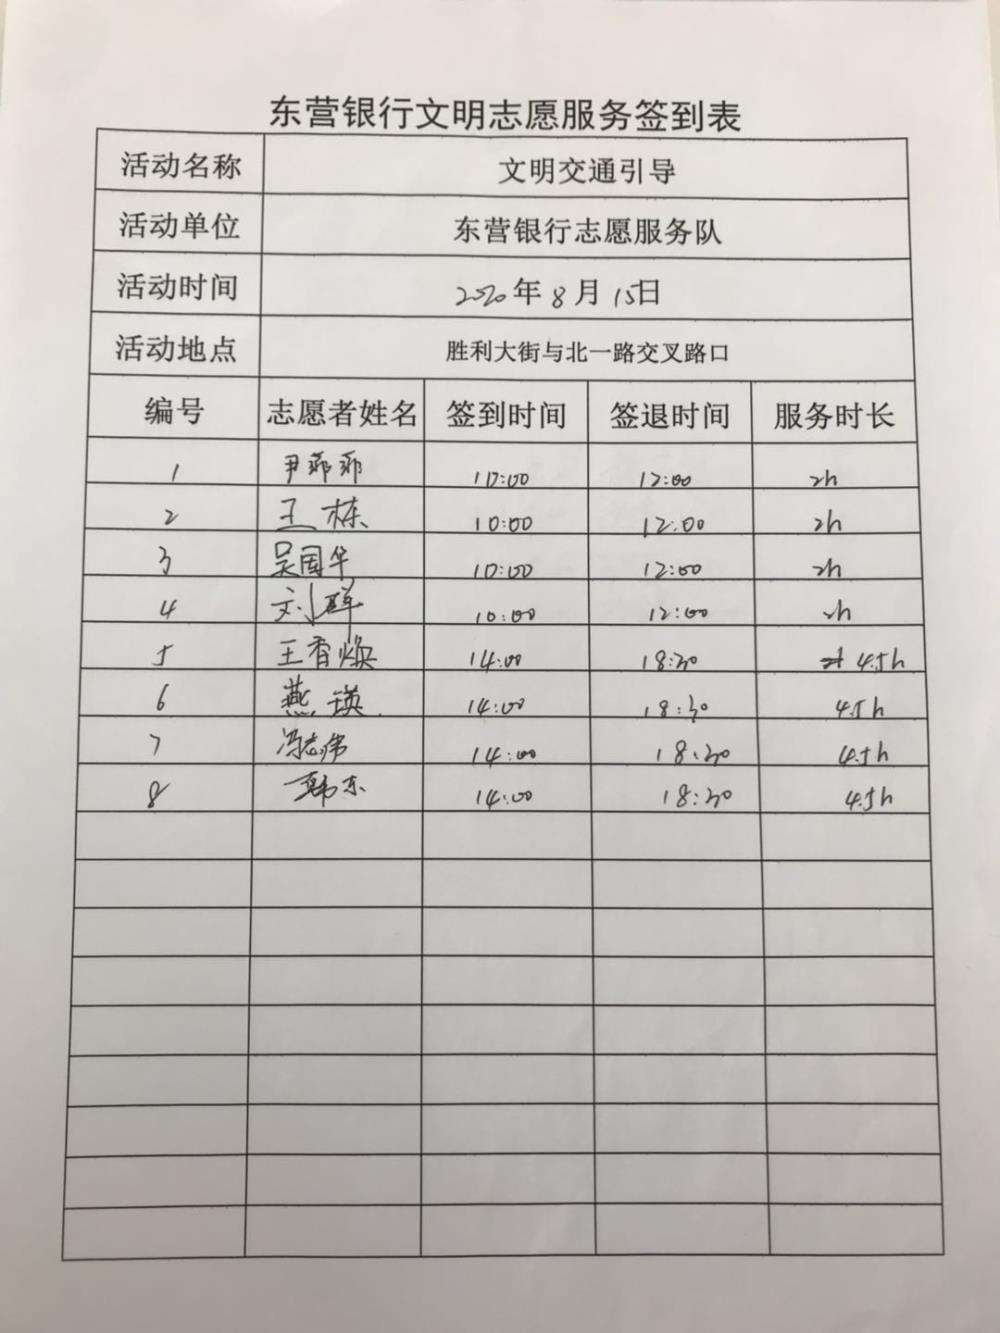 东营银行文明志愿服务签到表
活动名称 文明交通引导
活动单位 东营银行志愿服务队
活动时间 2020年8月15日
活动地点 胜利大街与北一路交叉路口
编号 志愿者姓名 签到时间 签退时间 服务时长
1 尹 10:00 12:00 2h
2 王栋 10:00 12:00 2h
3 吴国华 10:00 12:00 2h
4 刘群 10:00 12:00 2h
5 王香焕 14:00 18:30 4.5h
6 燕瑛 14:00 18:30 4.5h
7 冯志伟 14:00 18:30 4.5h
8 韩东 14:00 18:30 4.5h